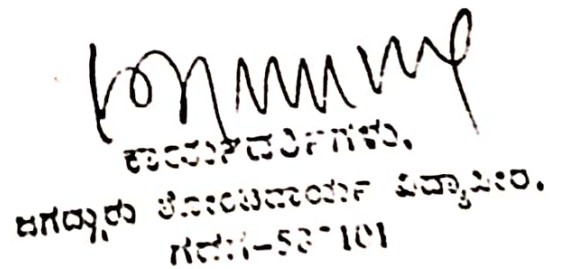 ಕಾರ್ಯದರ್ಶಿಗಳು,
ಜಗದ್ಗುರು ತೋಂಟದಾರ್ಯ ವಿದ್ಯಾಪೀಠ,
ಗದಗ-582101